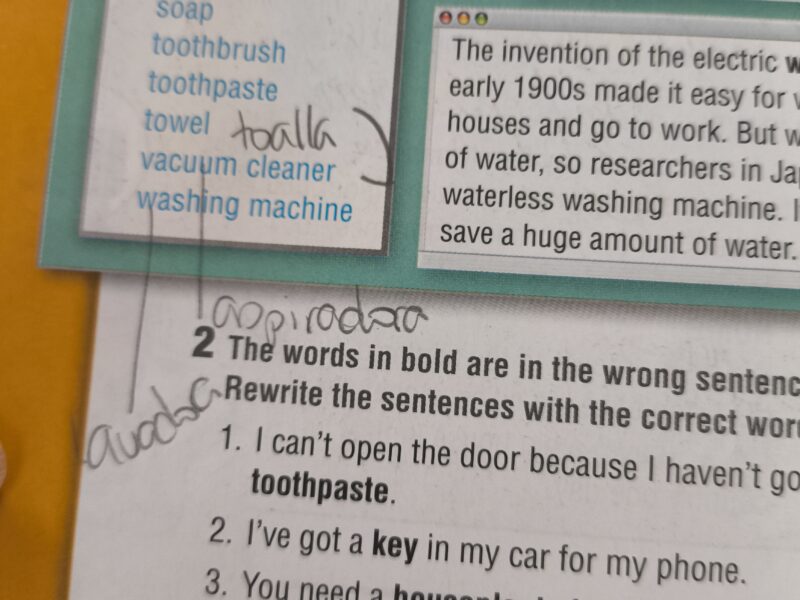 soap
toothbrush
toothpaste
towel toalla
vacuum cleaner
washing machine
The invention of the electric
early 1900s made it easy for
houses and go to work. But
of water, so researchers in
waterless washing machine.
save a huge amount of water.
aspiradora
2 The words in bold are in the wrong
Rewrite the sentences with the correct
lavadora
1. I can't open the door because I haven't
toothpaste.
2. I've got a key in my car for my phone.
3. You need a